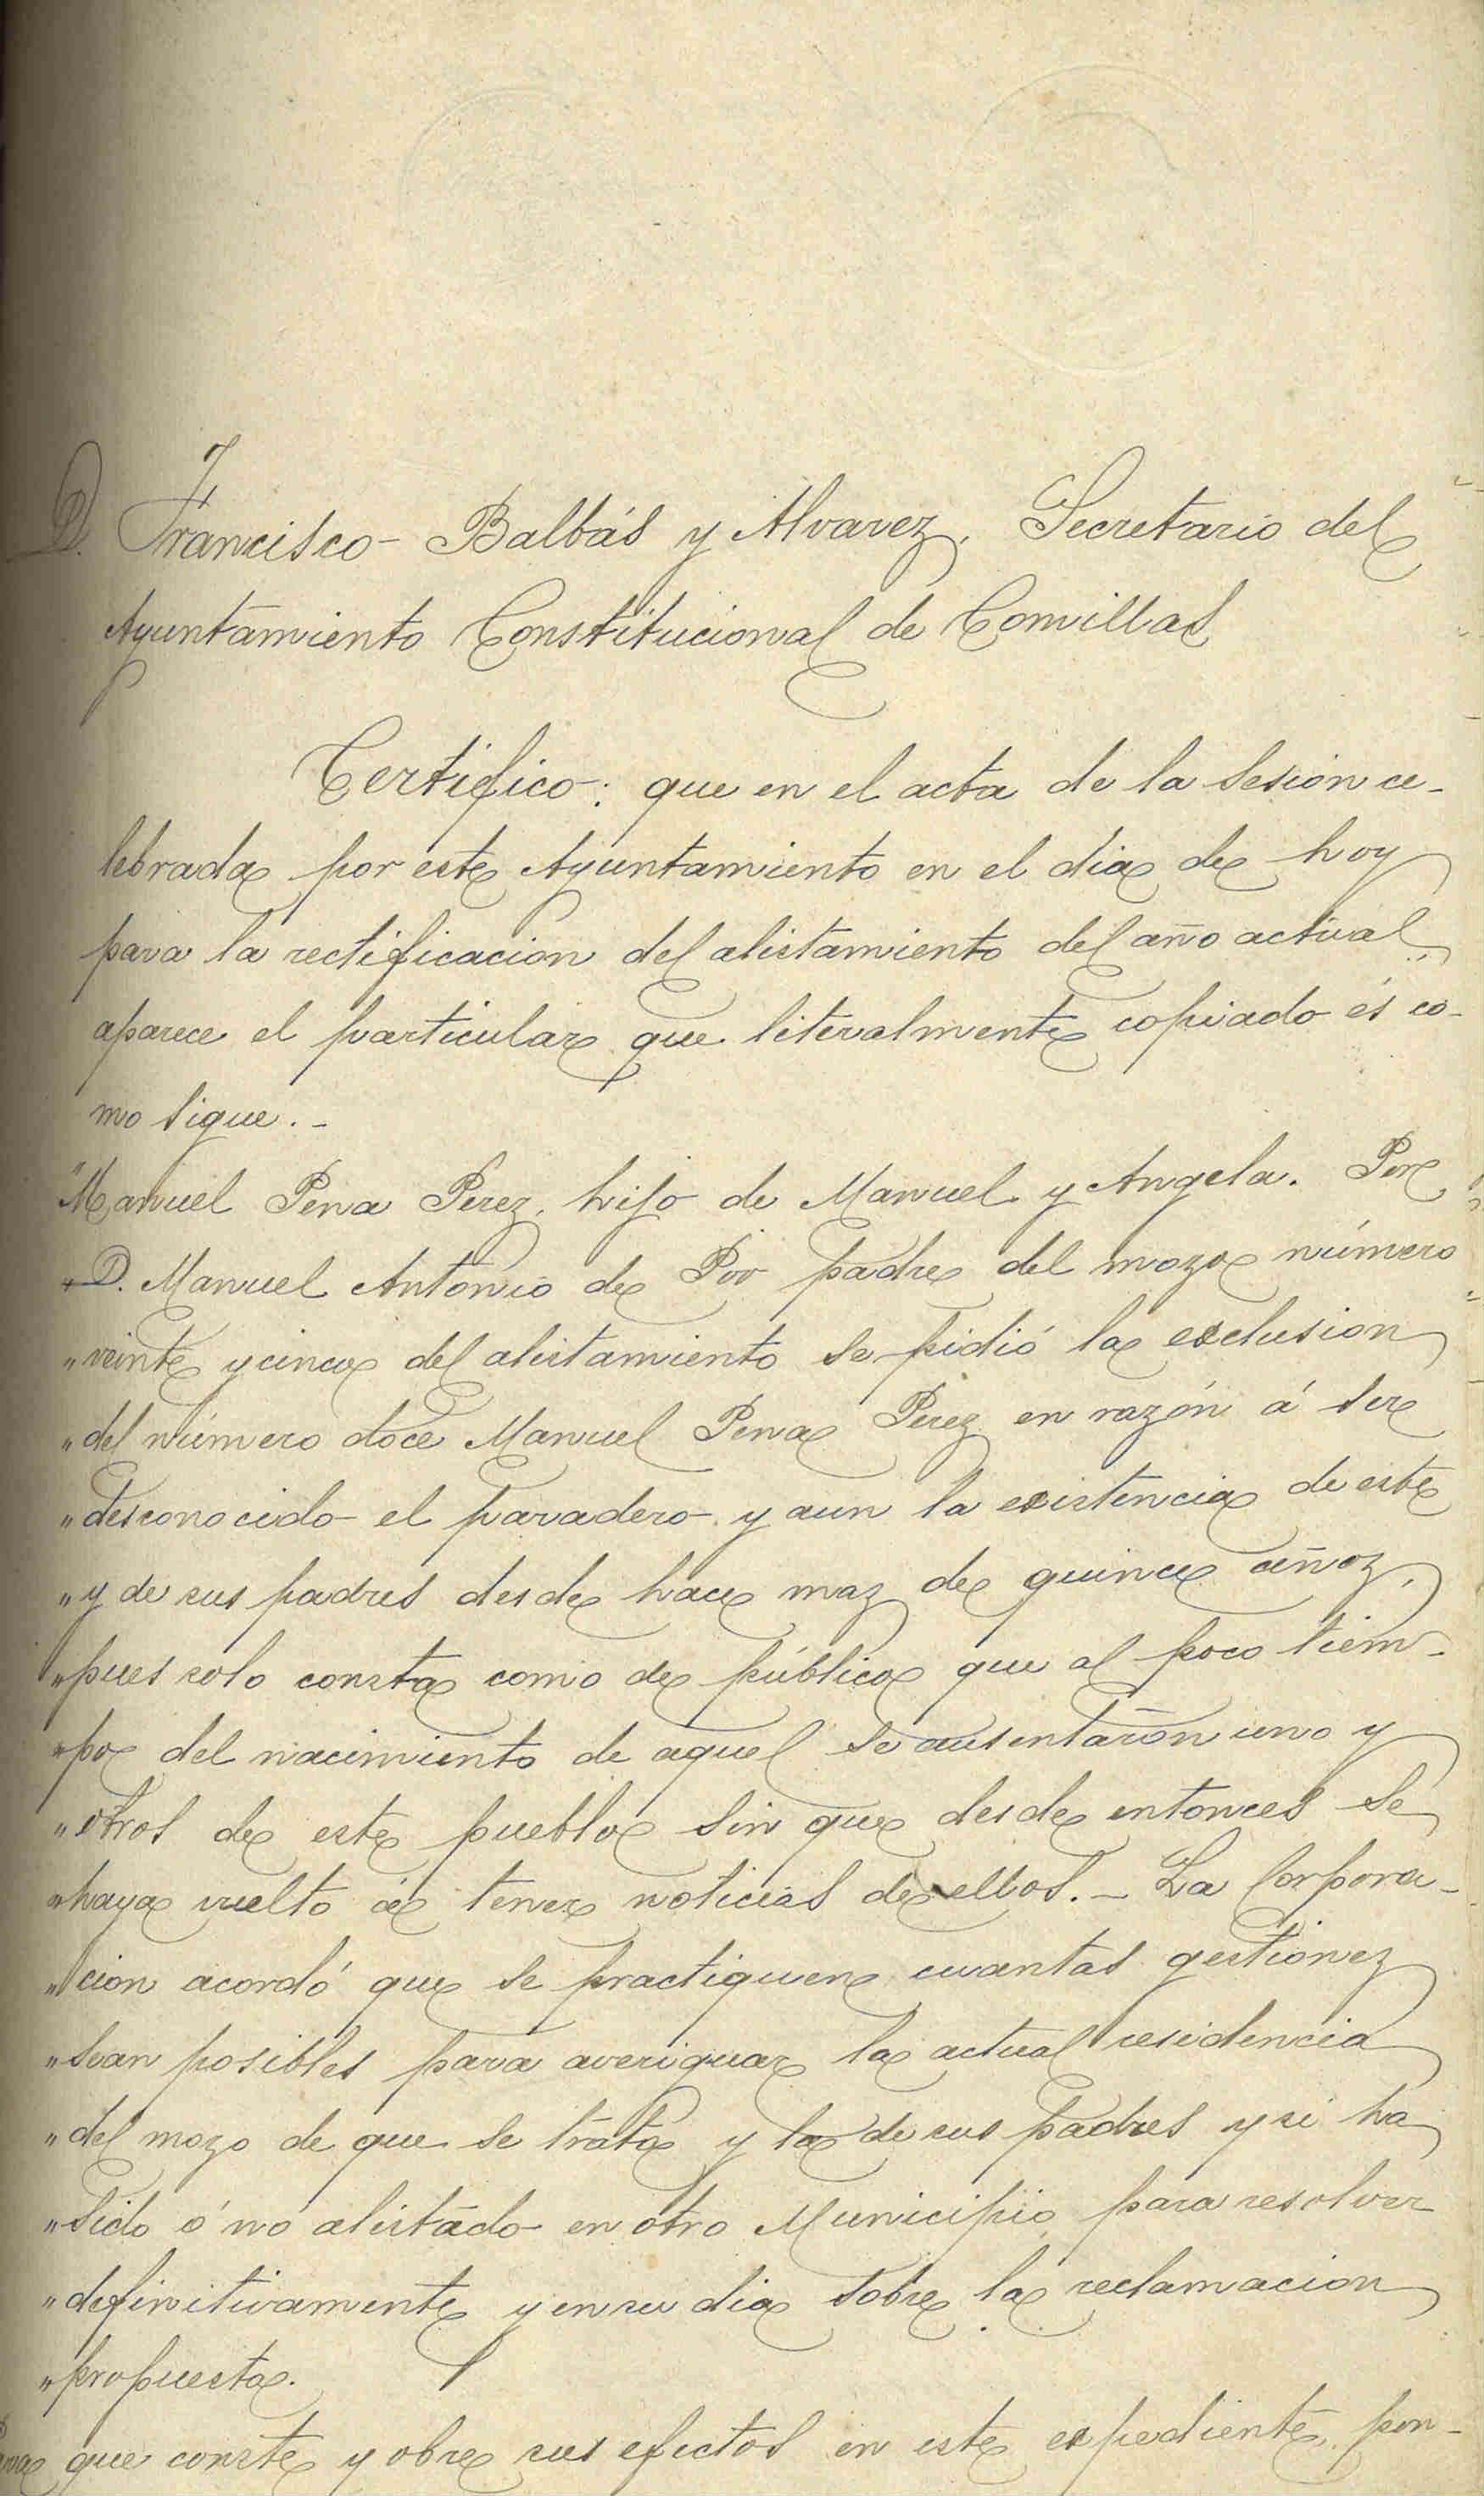 D. Francisco Balbás y Alvarez, Secretario del
Ayuntamiento Constitucional de Comillas
Certifico: que en el acta de la sesión ce-
lebrada por este Ayuntamiento en el dia de hoy
para la rectificacion del alistamiento del año actual,
aparece el particular que literalmente copiado és co-
mo sigue. -
"Manuel Pena Perez, hijo de Manuel y Angela. Por
"D. Manuel Antonio de Poo padre del mozo número
"veinte y cinco del alistamiento se pidió la exclusion
"del número doce Manuel Pena Perez en razón á ser
"desconocido el paradero y aun la existencia de este
"y de sus padres desde hace maz de quince añoz,
"pues solo consta como de público que al poco tiem-
"po del nacimiento de aquel se ausentaron uno y
"otros de este pueblo sin que desde entonces se
"haya vuelto á tener noticias de ellos. - La Corpora-
"cion acordó que se practiquen cuantas gestionez
"sean posibles para averiguar la actual residencia
"del mozo de que se trata y la de sus padres y si ha
"sido ó no alistado en otro Municipio para resolver
"definitivamente y en su dia sobre la reclamacion
"propuesta.
que conste y obre sus efectos en este expediente, pon-